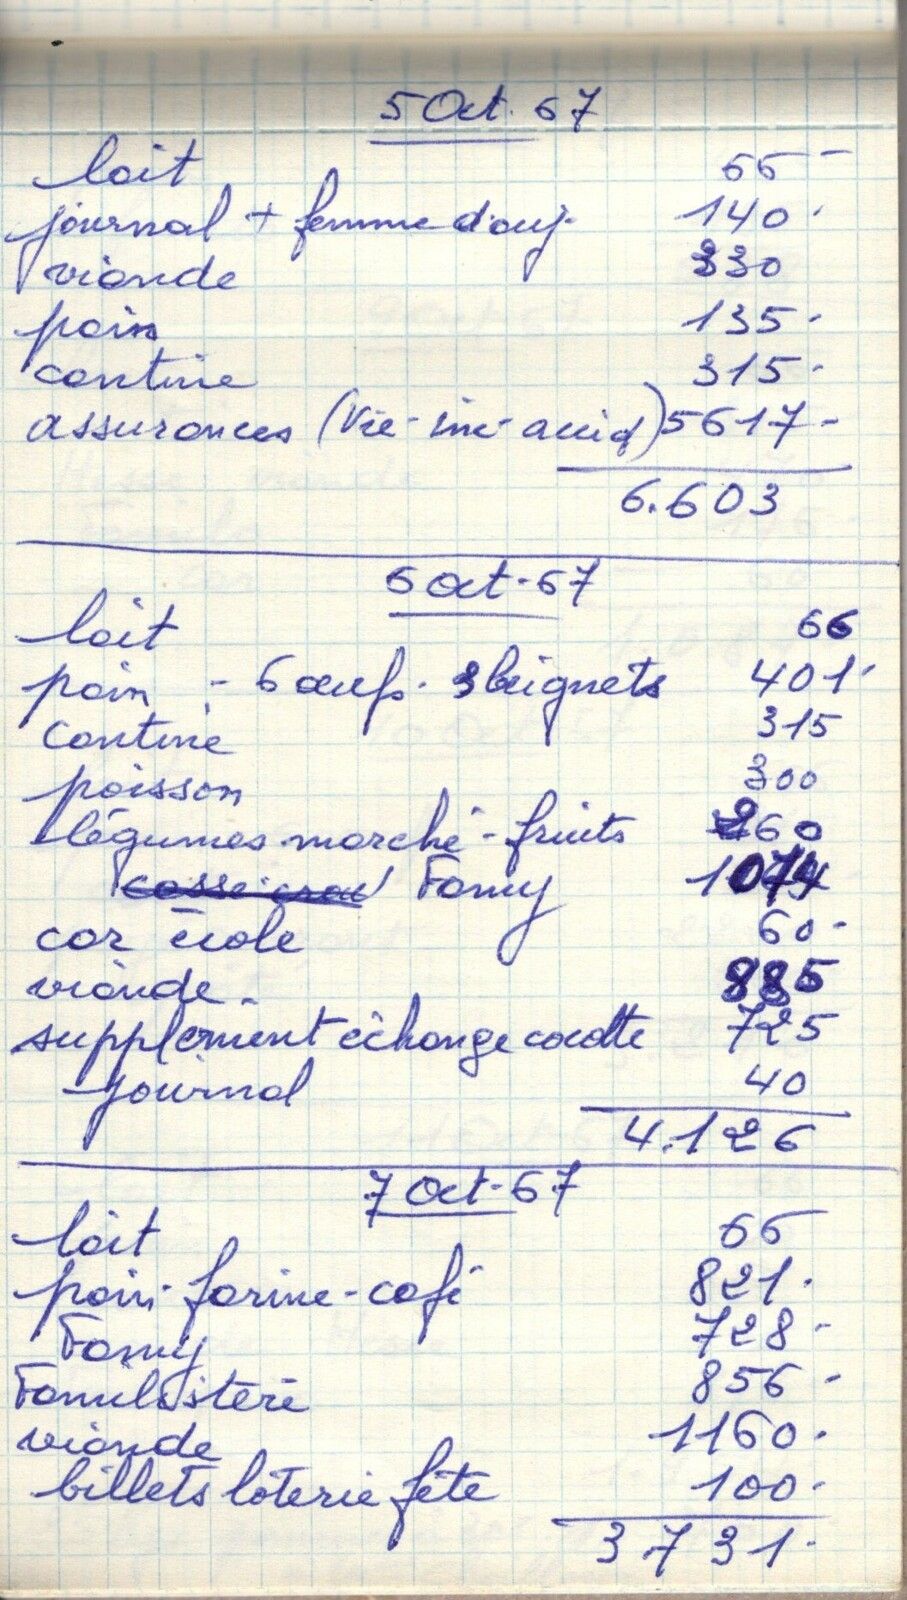 5 Oct. 67
lait 66 -
journal + femme d'auj. 140.
viande 330
pain 135.
cantine 315.
assurances (Vie - inc - accid) 5617 -
6.603
6 oct. 67
lait 66
pain - 6 œufs. 3 beignets 401.
cantine 315
poisson 300
légumes marché - fruits 260
Famy 1074
car école 60.
viande. 885
supplément échange cocotte 725
journal 40
4.126
7 Oct. 67
lait 66
pain - farine - café 821.
Famy 728 -
Familistère 856 -
viande 1160.
billets loterie fête 100.
3.731.